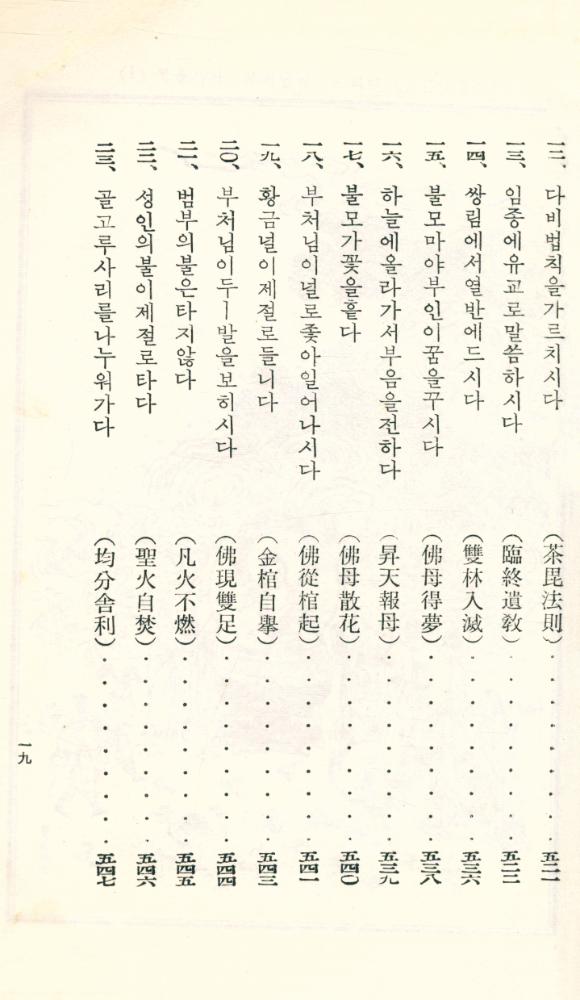 一二、 다비법칙을가르치시다 (茶毘法則)··········五二一
一三、 임종에유교로말씀하시다 (臨終遺教)··········五二二
一四、 쌍림에서열반에드시다 (雙林入滅)··········五三六
一五、 불모마야부인이꿈을꾸시다 (佛母得夢)··········五三八
一六、 하늘에올라가서부음을전하다 (昇天報母)··········五三九
一七、 불모가꽃을흩다 (佛母散花)··········五四〇
一八、 부처님이널로좇아일어나시다 (佛從棺起)··········五四一
一九、 황금널이제절로들니다 (金棺自擧)··········五四三
二〇、 부처님이두ー발을보히시다 (佛現雙足)··········五四四
二一、 범부의불은타지않다 (凡火不燃)··········五四五
二二、 성인의불이제절로타다 (聖火自焚)··········五四六
二三、 골고루사리를나누워가다 (均分舍利)··········五四七
一九